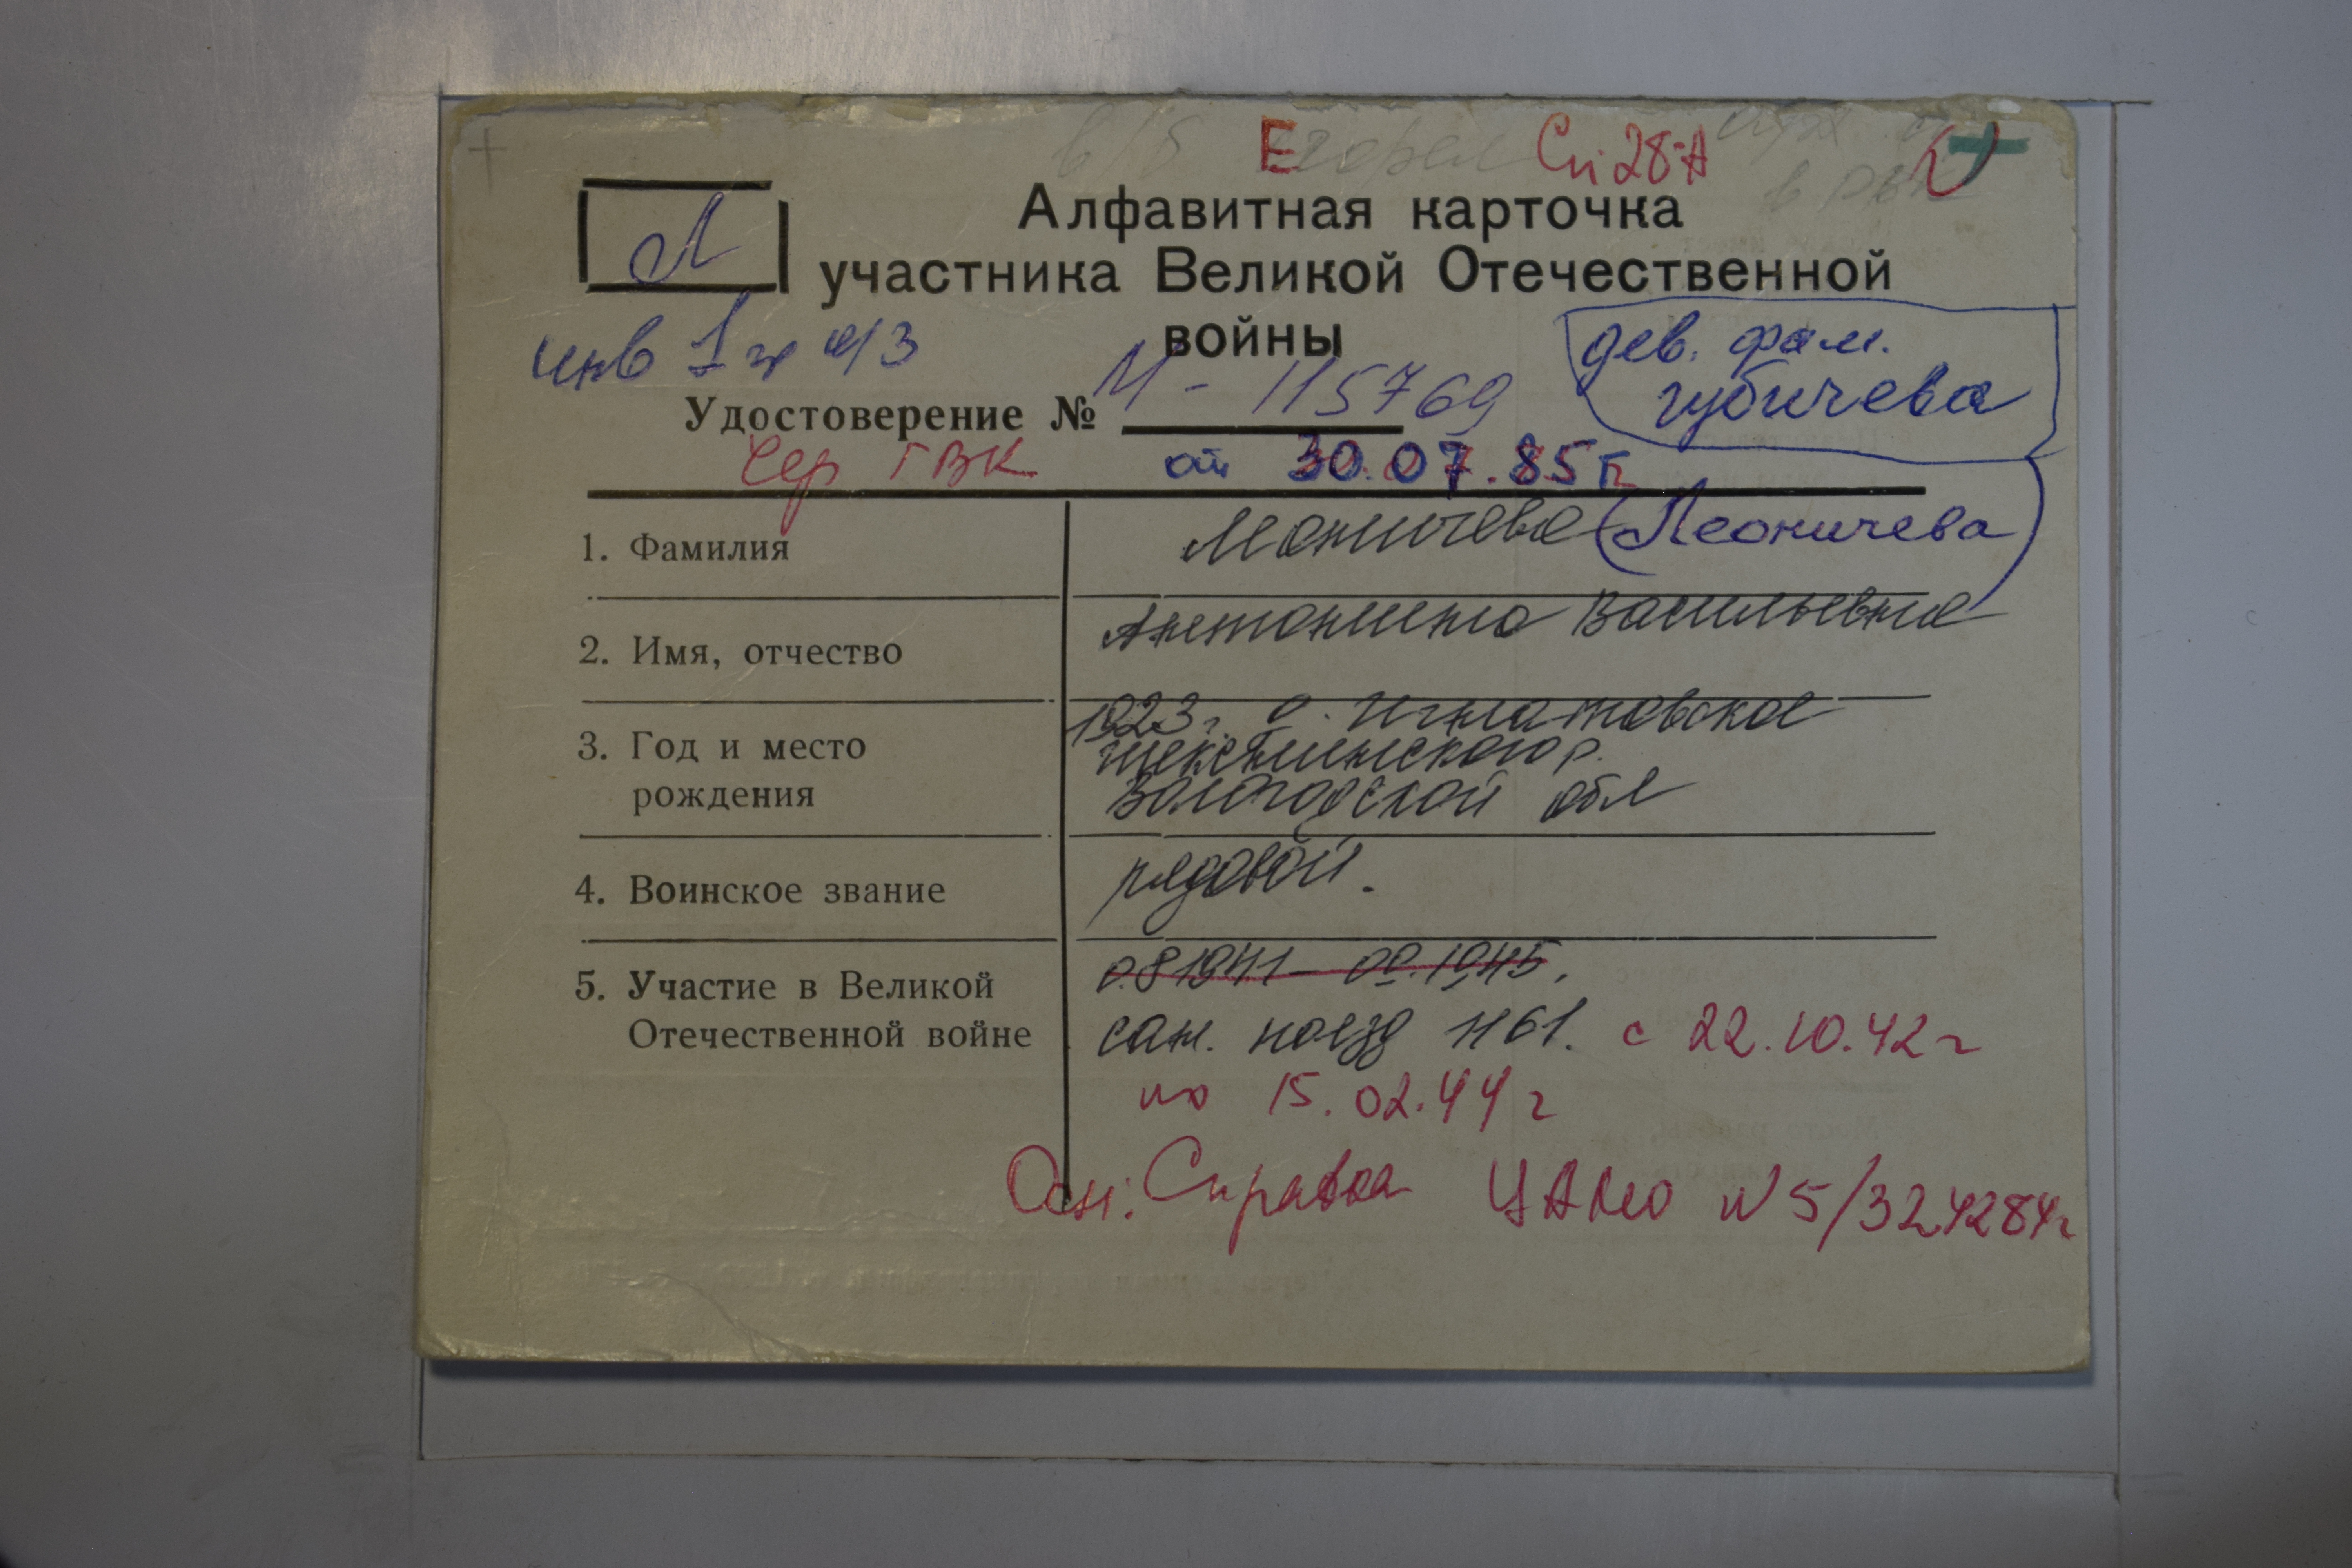 Е Сп 28-А
Л
Алфавитная карточка
участника Великой Отечественной
войны
инв 1 гр о/з
дев. фам.
губичева
Удостоверение № М - 115769
Чер ГВК от 30.07.85 г.
1. Фамилия Леоничева (Леоничева)
2. Имя, отчество Антонина Васильевна
3. Год и место
рождения
1923 г. д. Игнатовское
Шекснинского р.
Вологодской обл
4. Воинское звание рядовой.
5. Участие в Великой
Отечественной войне
08 1941 – 09.1945.
сан. поезд № 61. с 22.10.42 г
по 15.02.44 г
Осн: Справка ЦАМО N 5/324284г